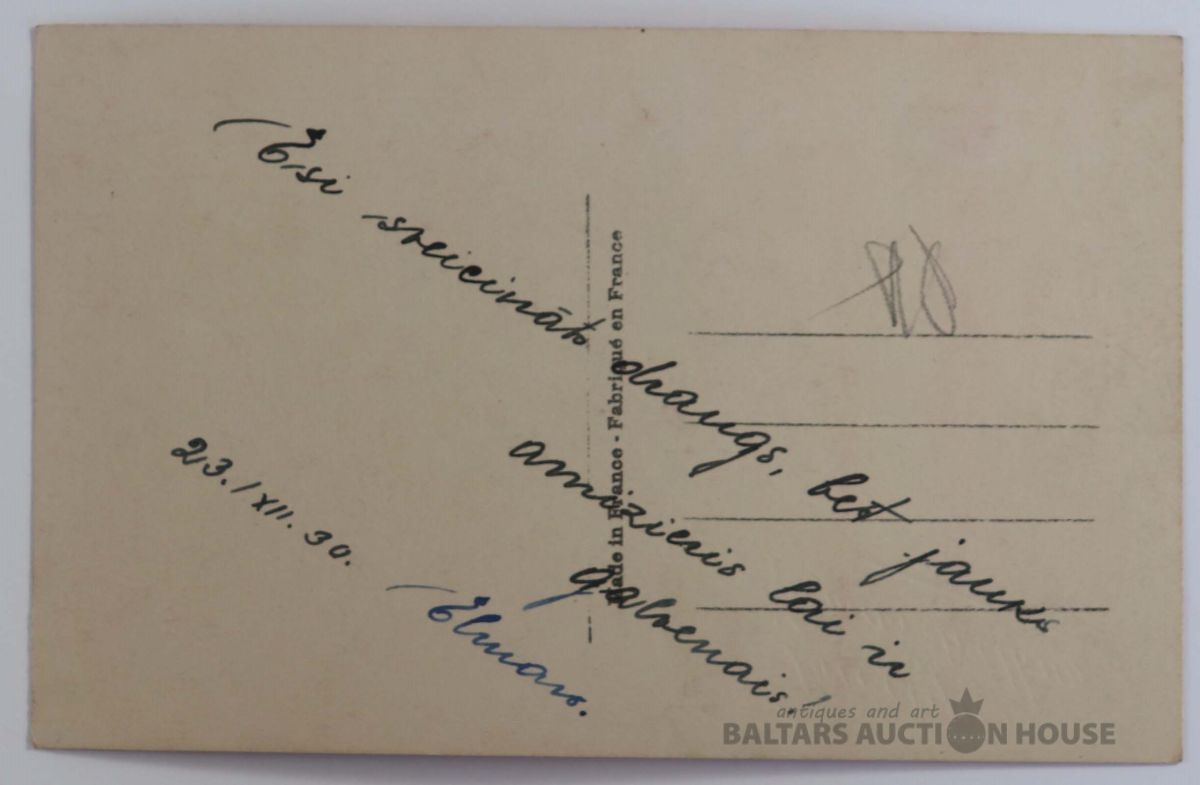 Esi sveicināts draugs, bet jauks
amizieris lai ir
galvenais!
23./XII. 30.
Elmars.
Made in France - Fabriqué en France
antiques and art
BALTARS AUCTION HOUSE